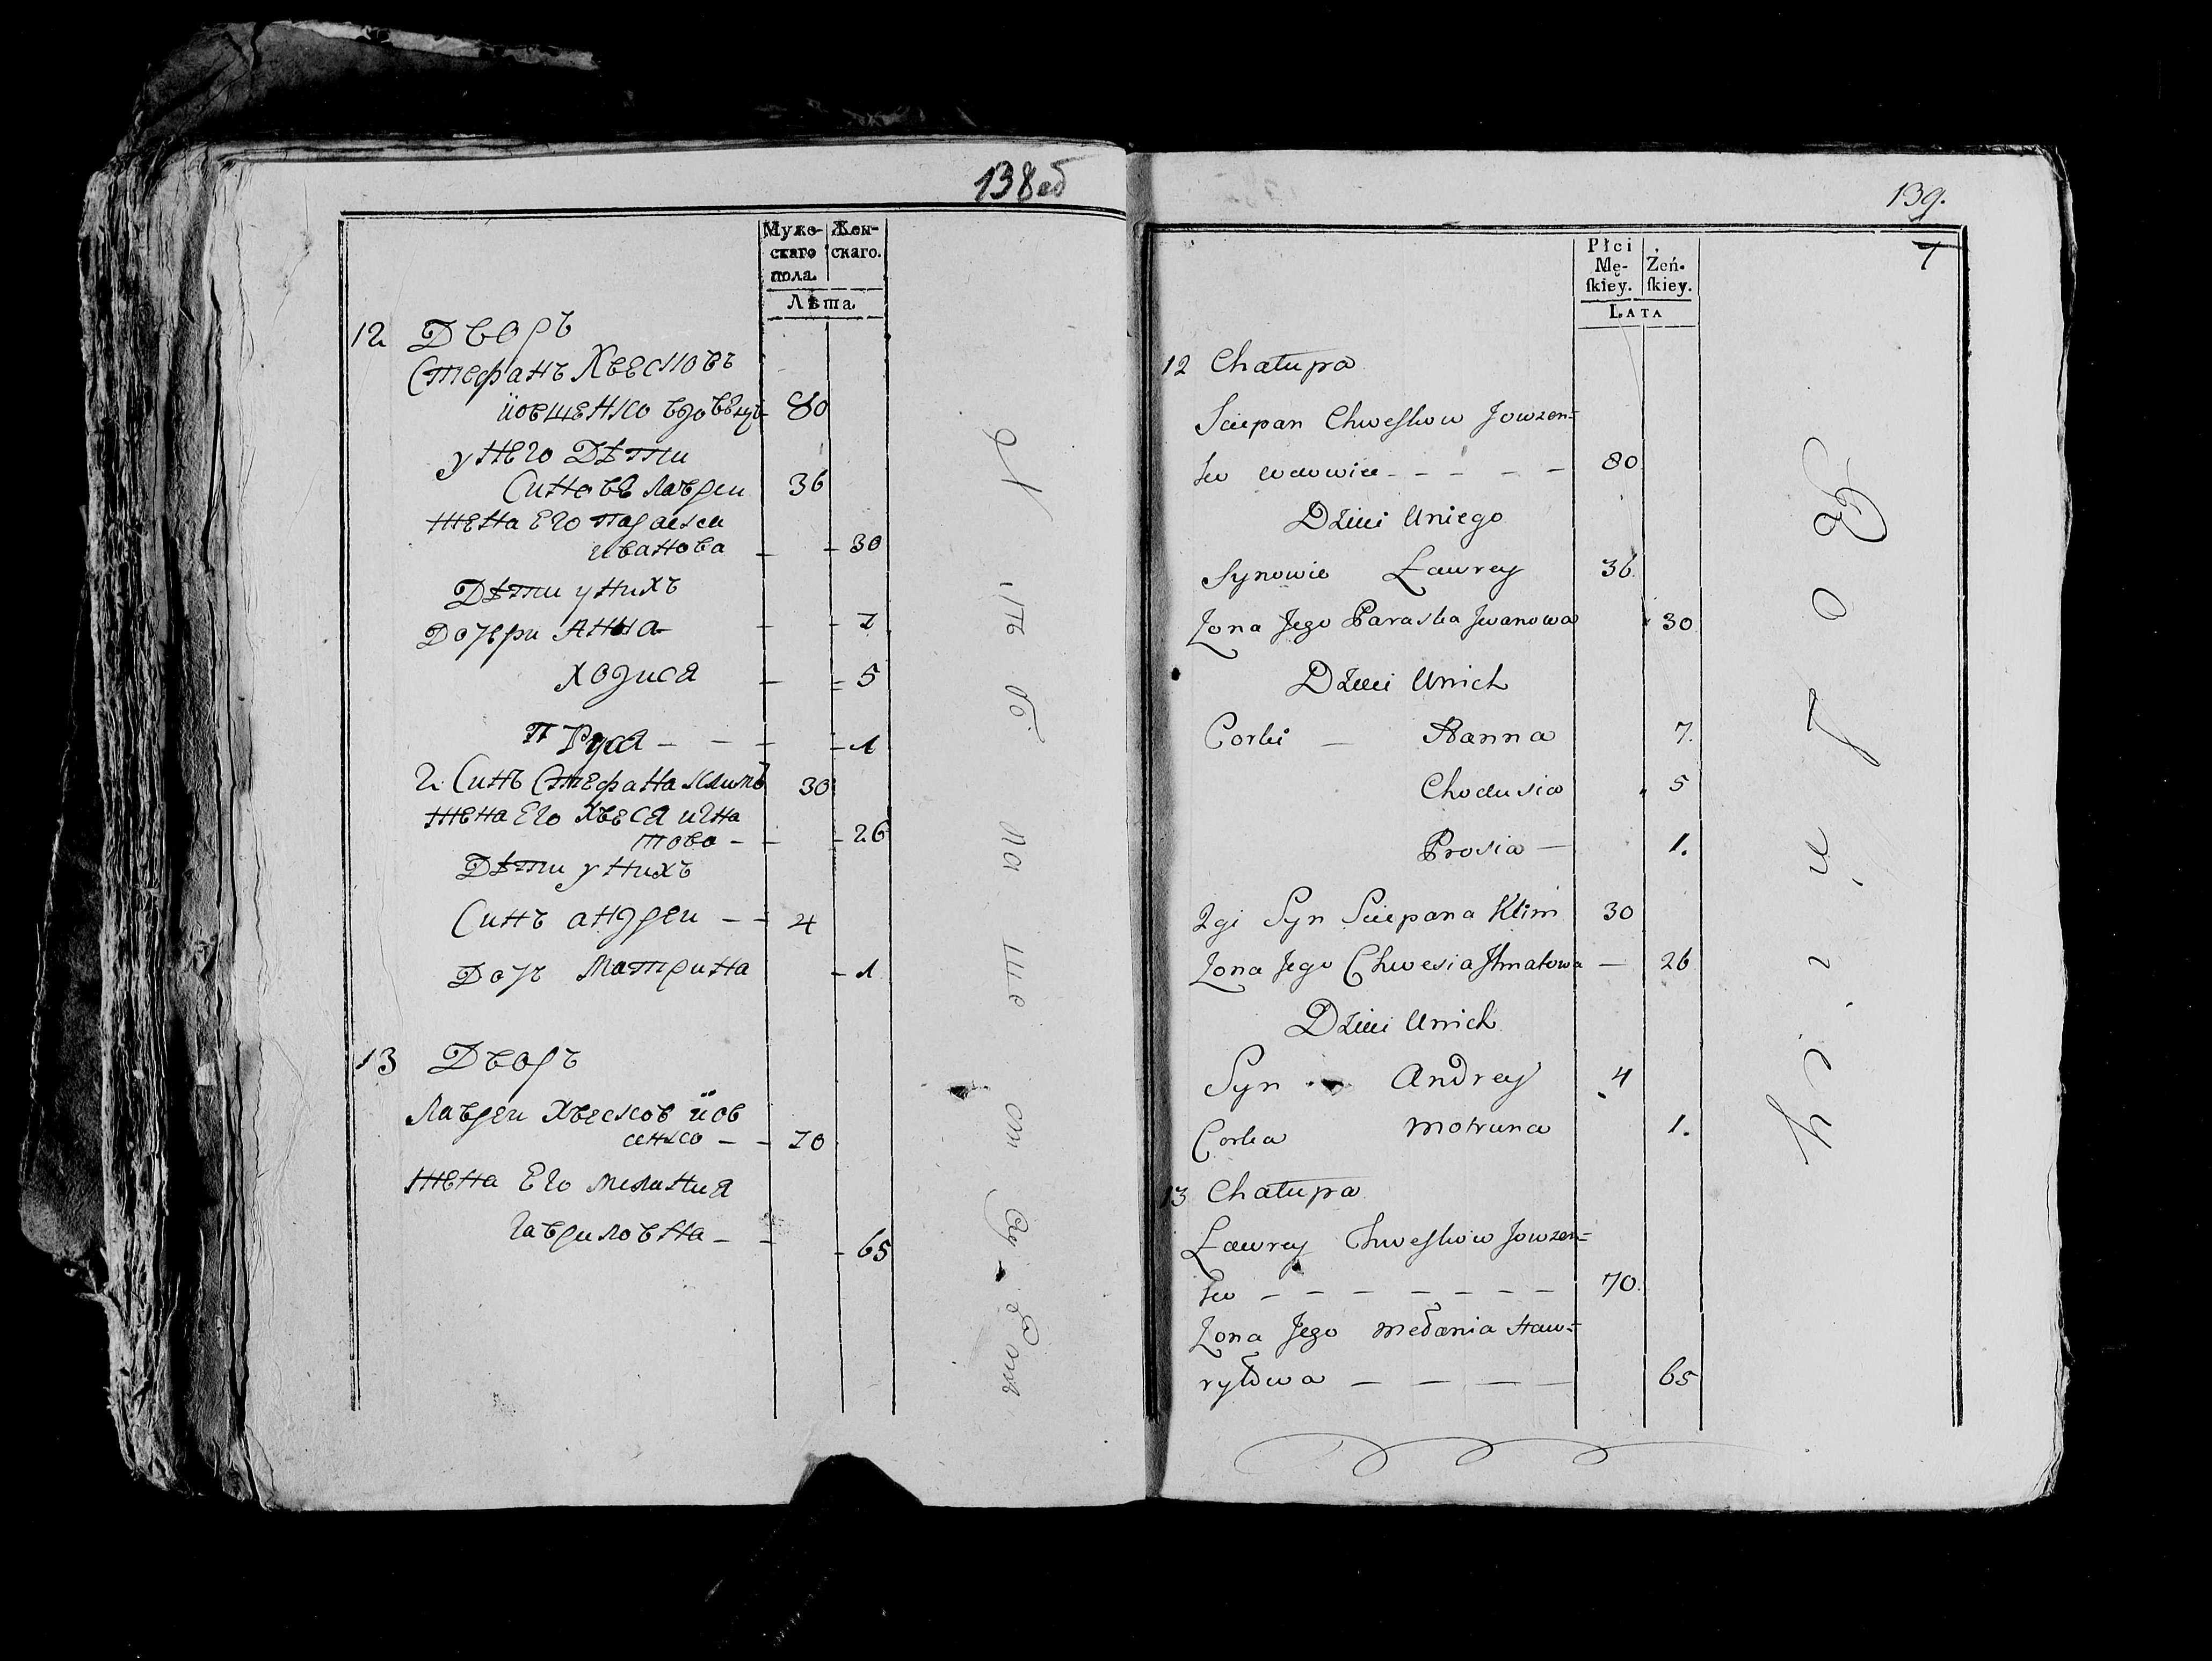 138об
Мужескаго пола.
Женскаго.
Лѣта
12 Дворъ
Стефанъ Хвесковъ
йовшенко вдовѣцъ 80
у Него Дѣти
Синовѣ лаврѣи 36
Жена Его параска
иванова - - 30
Дѣти у Нихъ
Дочери Анна - - 7
ходися - - 5
П Руся - - - - 1
2. Синъ Стефана климъ 30
Жена Его Хвеся игна
това - - - 26
Дѣти у Нихъ
Синъ андреи - - 4
Дочь Мотрина - 1
13 Дворъ
Лавреи Хвесков йов
сенко - - 70
Жена Его мелания
гавриловна - - - 65
139.
7
Płci Mę-
ſkiey.
Żeń-
ſkiey.
LATA
12 Chałupa
Sciepan Chweſkow Jowzen=
ko wdowiec - - - - - 80
Dzieci Uniego
Synowie Ławrey 36.
Zona Jego Paraska Jwanowa 30
Dzieci Unich
Corki - Hanna 7.
Chodusia 5
Prosia - 1.
2gi Syn Sciepana Klim 30
Zona Jego Chwesia Jhnatowa - 26
Dzieci Unich
Syn Andrey 4
Corka Motruna 1.
13 Chałupa
Ławrey Chweſkow Jowzen=
ko - - - - - - - 70.
Zona Jego Mełania Haw=
ryłowa - - - - 65